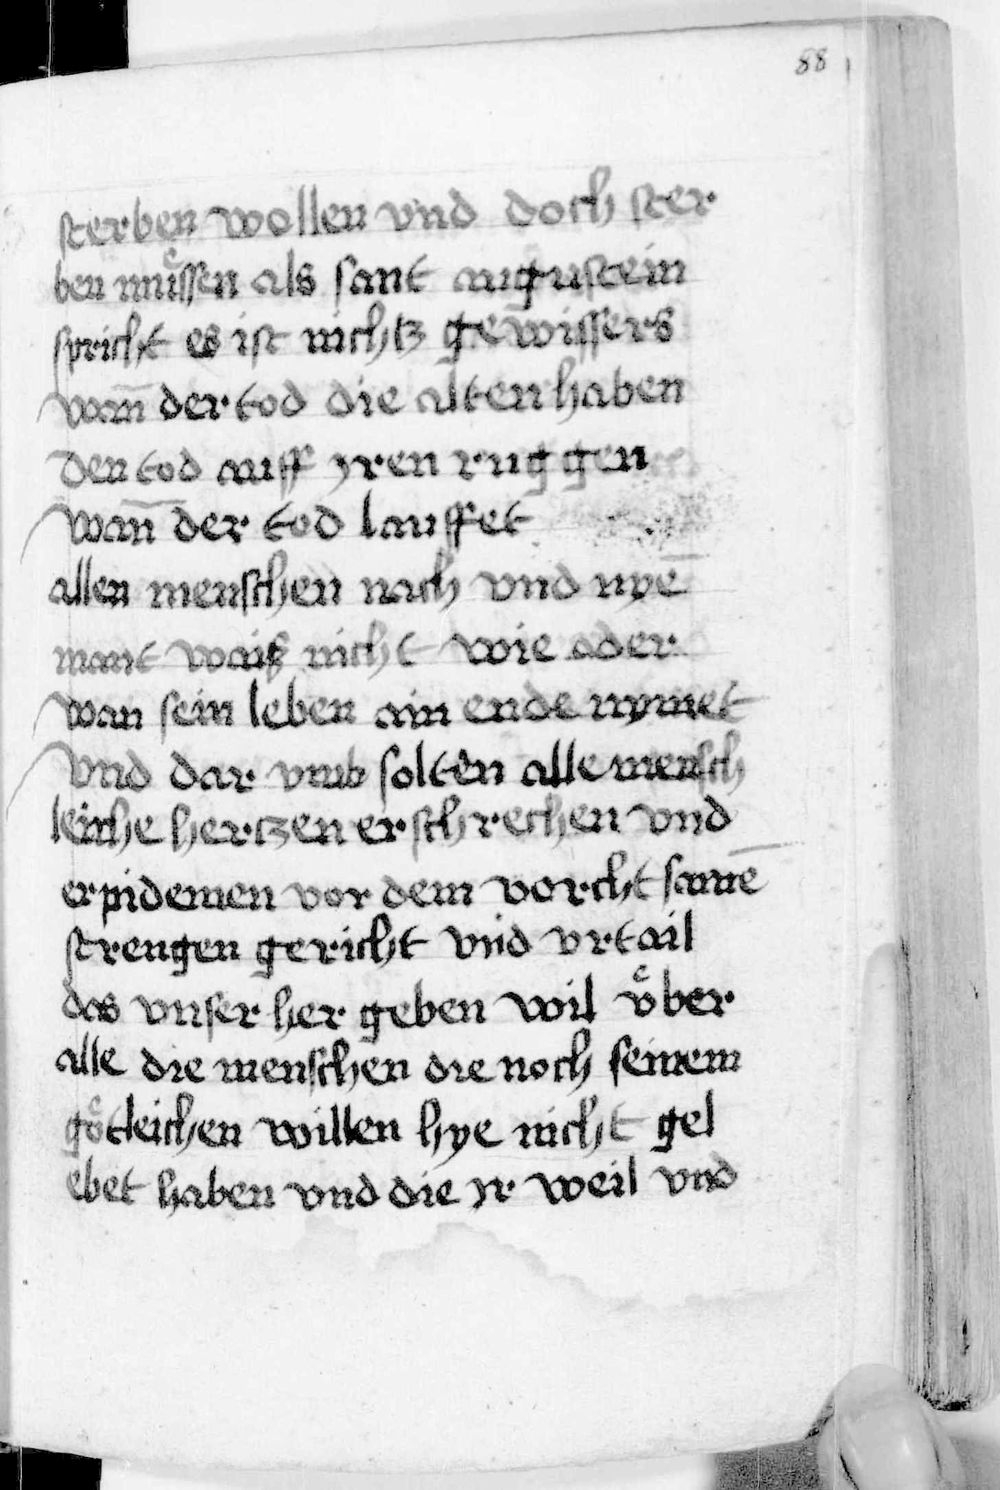 88
sterben wollen vnd doch ster
ben muͤssen als sant augustein
spricht es ist nichtz gewissers
wan̄ der tod die alten haben
den tod auff yren ruggen
wan̄ der tod lauffet
allen menschen nach vnd nyē
mant waiß nicht wie oder
wan sein leben ain ende nymet
vnd dar vmb solten alle mensch
leiche hertzen erschrechen vnd
erpidemen vor dem vorcht samē
strengen gericht vnd vrtail
das vnser her geben wil vͤber
alle die menschen die noch seinem
goͤtleichen willen hye nicht gel
ebet haben vnd die yr weil vnd